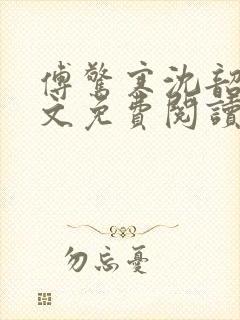 傅驚寒沈韶
文免費閱讀
勿忘憂